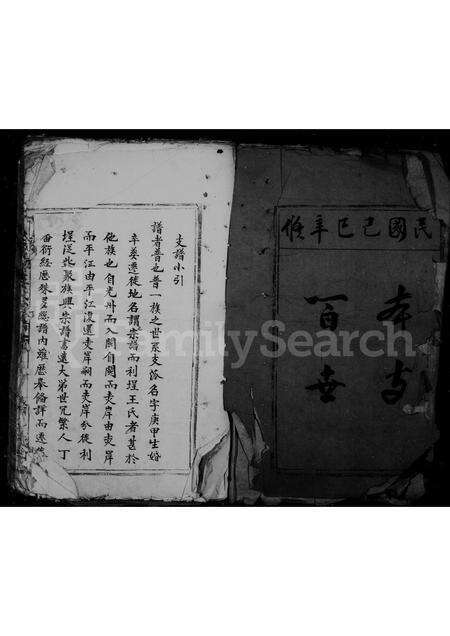 民國己巳年修
本支
百世
支譜小引
譜者普也普一族之世系支派名字庚甲生婚
卒葬遷徙地名謂宗譜而利埕王氏者甚於
他族也自光州而入閩自閩而
岸由
岸
而平江由平江復還
岸嗣而
岸分徙利
埕從此聚族興宗譜書遠大第世冗繁人丁
番衍經歷
譜內雖歷
詳而遺
FamilySearch